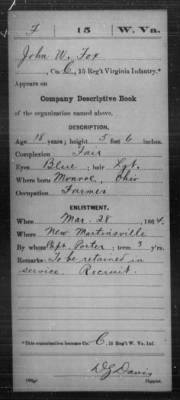 F 15 W. Va.
John W. Fox
, Co. C, 15 Reg't Virginia Infantry.*
Appears on
Company Descriptive Book
of the organization named above.
DESCRIPTION.
Age 18 years; height 5 feet 6 inches.
Complexion Fair
Eyes Blue; hair Lgt.
Where born Monroe, Ohio
Occupation Farmer
ENLISTMENT.
When Mar. 28, 1864.
Where New Martinsville
By whom Capt. Porter; term 3 y'rs.
Remarks: To be retained in
service. Recruit.
*This organization became Co. C, 15 Reg't W. Va. Inf.
D G Davis
Copyist.